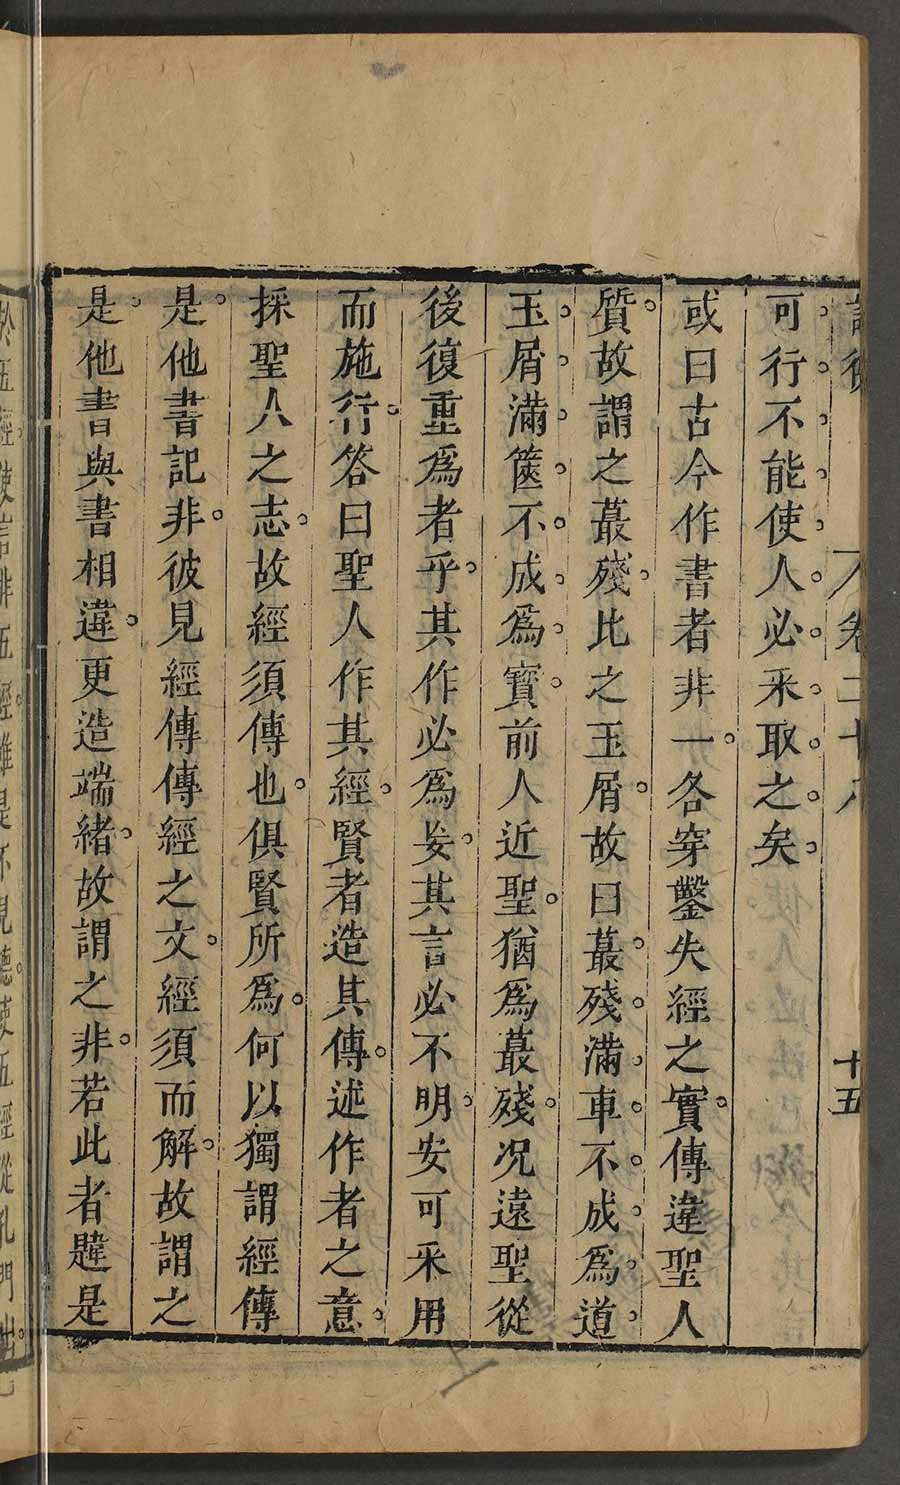 卷二十八 十五
可行不能使人必采取之矣
或曰古今作書者非一各穿鑿失經之實傳違聖人
質故謂之蕞殘比之玉屑故曰蕞殘滿車不成爲道
玉屑滿篋不成爲寶前人近聖猶爲蕞殘况遠聖從
後復重爲者乎其作必爲妄其言必不明安可采用
而施行答曰聖人作其經賢者造其傳述作者之意
採聖人之志故經須傳也俱賢所爲何以獨謂經傳
是他書記非彼見經傳傳經之文經須而解故謂之
是他書與書相違更造端緒故謂之非若此者韙是